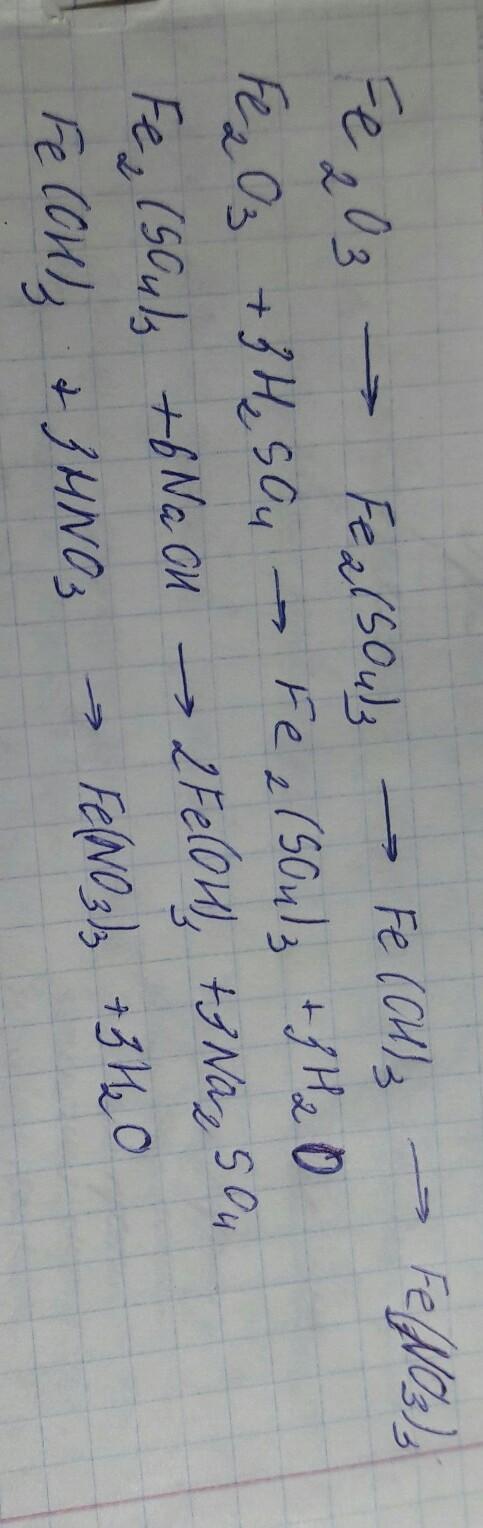 Fe₂O₃ → Fe₂(SO₄)₃ → Fe(OH)₃ → Fe(NO₃)₃
Fe₂O₃ + 3H₂SO₄ → Fe₂(SO₄)₃ + 3H₂O
Fe₂(SO₄)₃ + 6NaOH → 2Fe(OH)₃ + 3Na₂SO₄
Fe(OH)₃ + 3HNO₃ → Fe(NO₃)₃ + 3H₂O